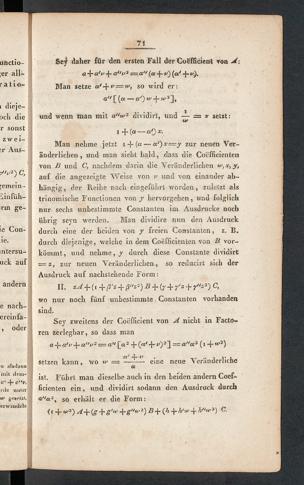 71
Sey daher für den ersten Fall der Coëfficient von A:
a + a′ν + a″ν² = a″ (α + ν) (α′ + ν).
Man setze α′ + ν = w, so wird er:
a″ [(α − α′) w + w²],
und wenn man mit a″w² dividirt, und 1/w = x setzt:
1 + (α − α′) x.
Man nehme jetzt 1 + (α − α′) x = y zur neuen Ver-
änderlichen, und man sieht bald, dass die Coëfficienten
von B und C, nachdem darin die Veränderlichen w, x, y,
auf die angezeigte Weise von ν und von einander ab-
hängig, der Reihe nach eingeführt worden, zuletzt als
trinomische Functionen von y hervorgehen, und folglich
nur sechs unbestimmte Constanten im Ausdrucke noch
übrig seyn werden. Man dividire nun den Ausdruck
durch eine der beiden von y freien Constanten, z. B.
durch diejenige, welche in dem Coëfficienten von B vor-
kömmt, und nehme, y durch diese Constante dividirt
= z, zur neuen Veränderlichen, so reducirt sich der
Ausdruck auf nachstehende Form:
II. zA + (1 + β′z + β″z²) B + (γ + γ′z + γ″z²) C,
wo nur noch fünf unbestimmte Constanten vorhanden
sind.
Sey zweitens der Coëfficient von A nicht in Facto-
ren zerlegbar, so dass man
a + a′ν + a″ν² = a″ [α² + (α′ + ν)²] = a″α² (1 + w²)
setzen kann, wo w = (α′ + ν)/α eine neue Veränderliche
ist. Führt man dieselbe auch in den beiden andern Coef-
ficienten ein, und dividirt sodann den Ausdruck durch
a″α², so erhält er die Form:
(1 + w²) A + (g + g′w + g″w²) B + (h + h′w + h″w²) C.